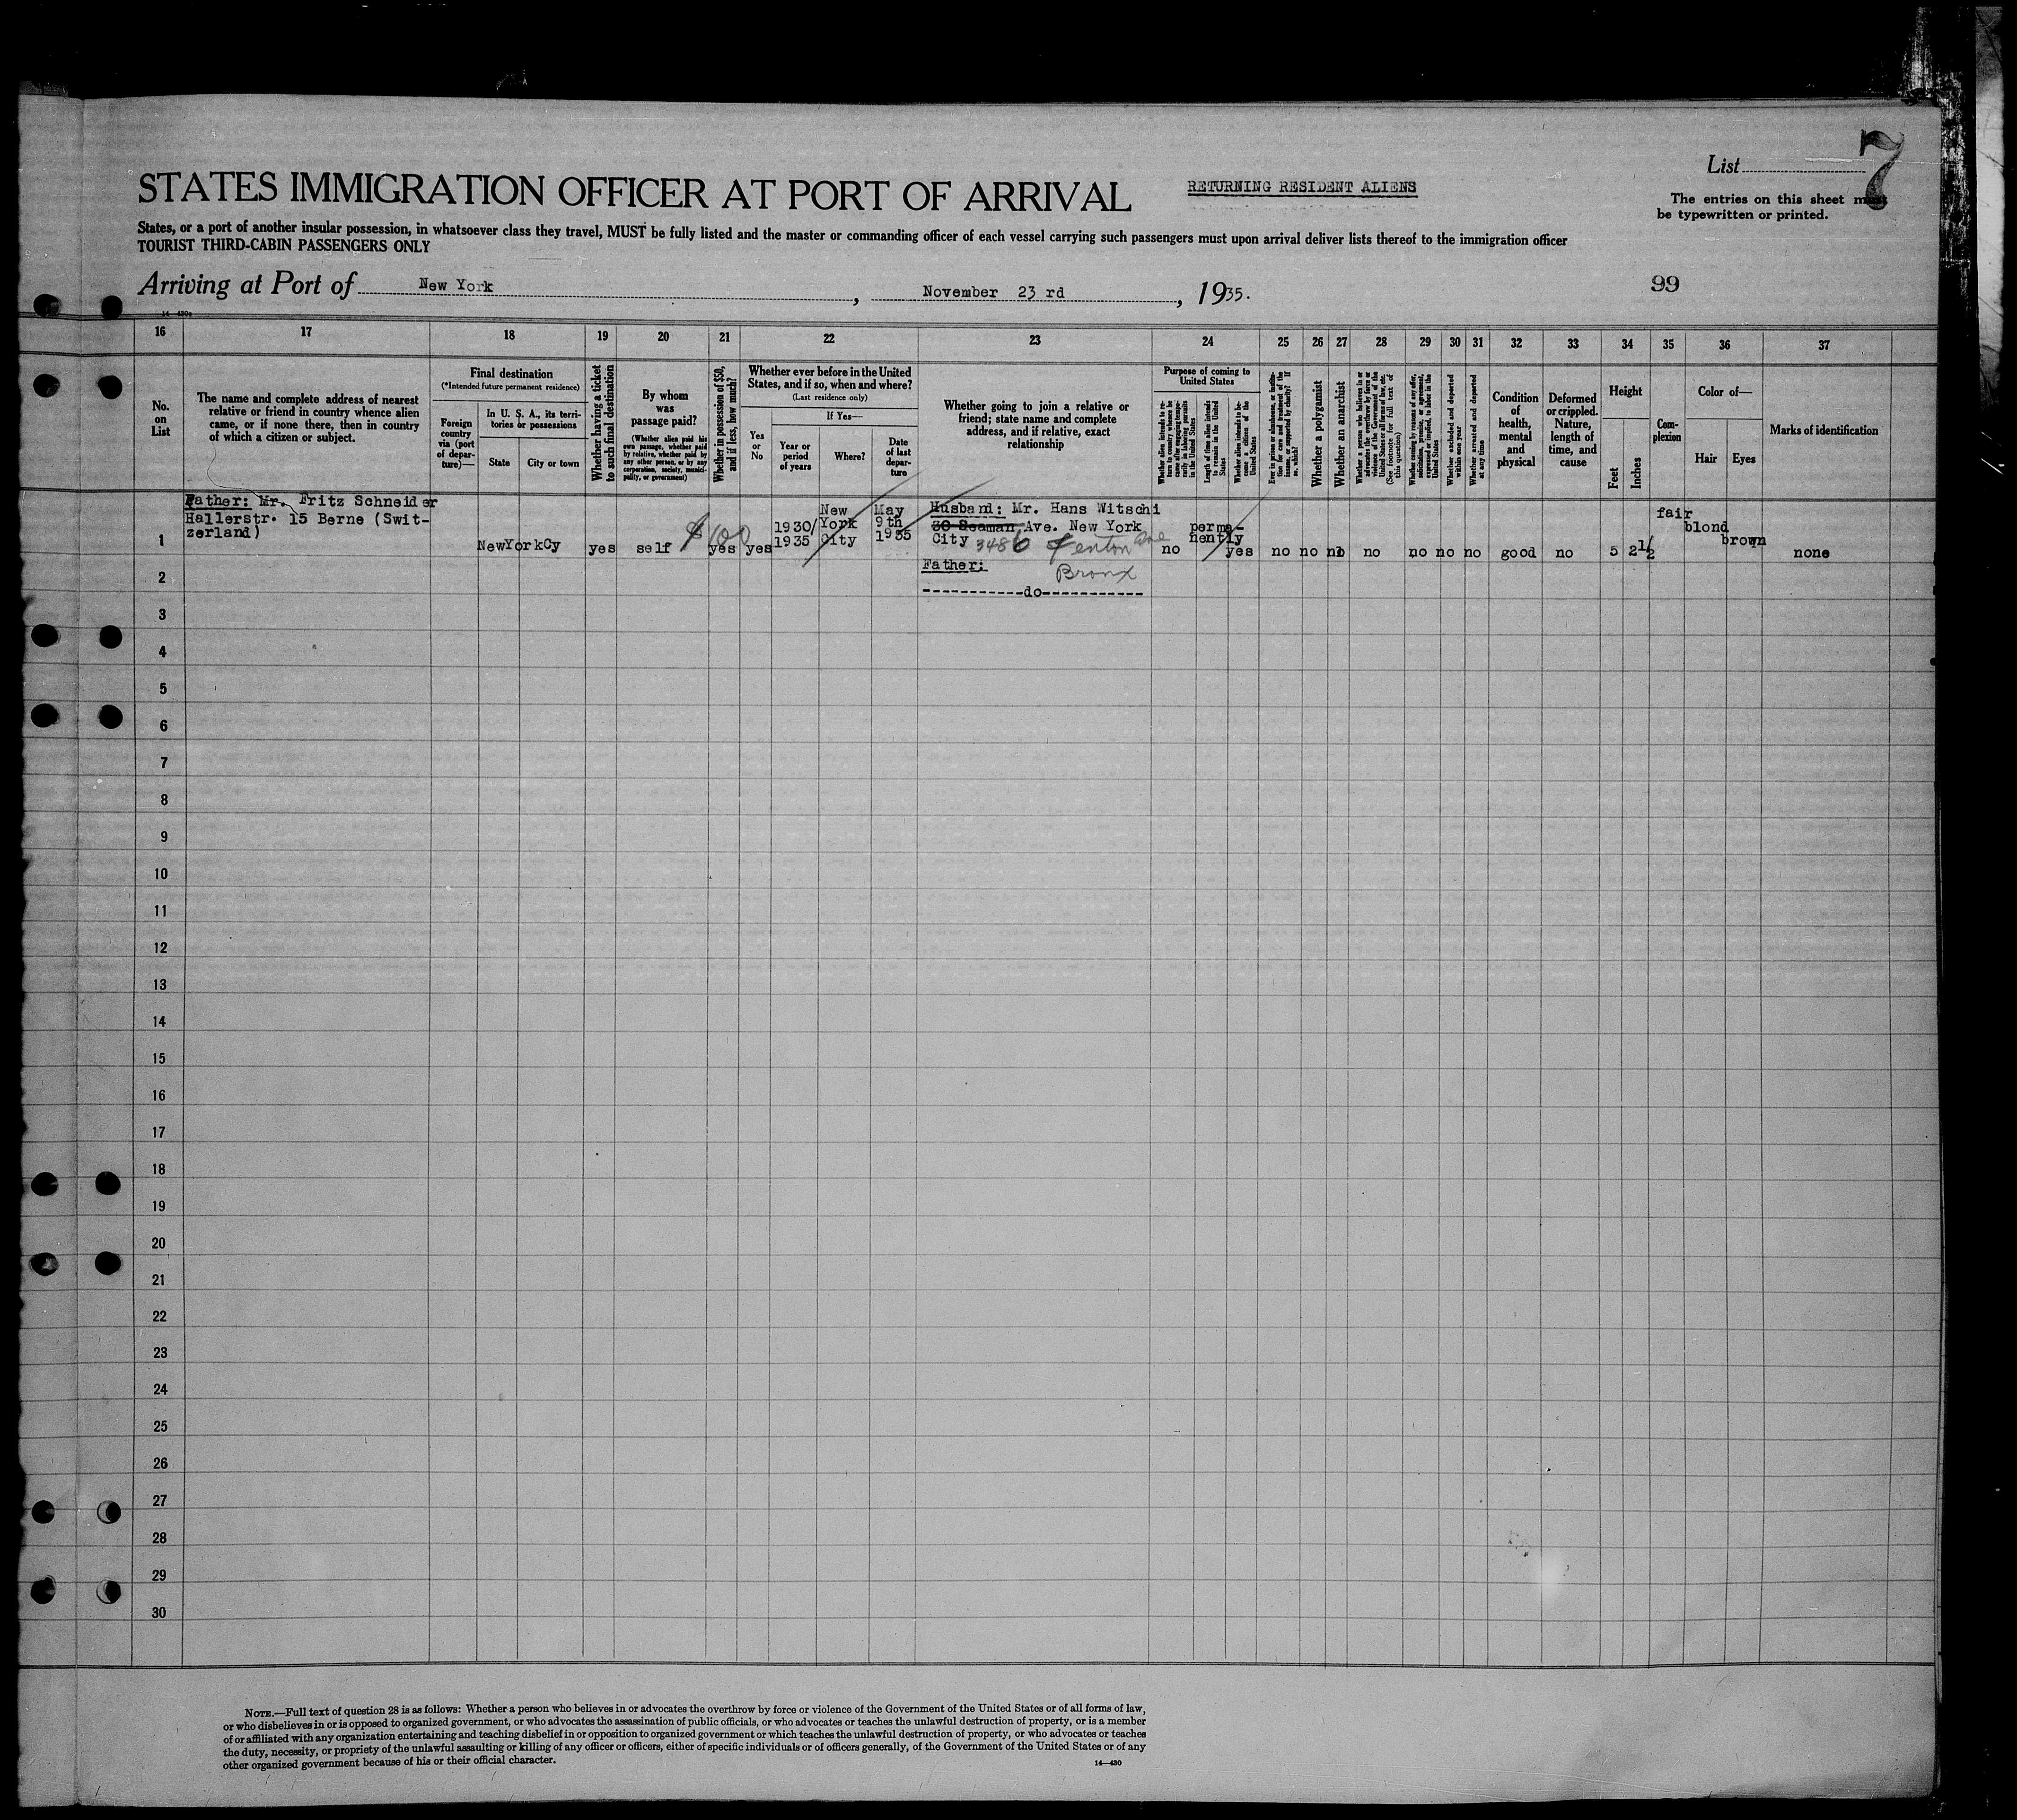 List 7
STATES IMMIGRATION OFFICER AT PORT OF ARRIVAL
RETURNING RESIDENT ALIENS
The entries on this sheet must
be typewritten or printed.
States, or a port of another insular possession, in whatsoever class they travel, MUST be fully listed and the master or commanding officer of each vessel carrying such passengers must upon arrival deliver lists thereof to the immigration officer
TOURIST THIRD-CABIN PASSENGERS ONLY
Arriving at Port of New York, November 23 rd, 1935.
99
14—430a
16 17 18 19 20 21 22 23 24 25 26 27 28 29 30 31 32 33 34 35 36 37
No.
on
List
The name and complete address of nearest
relative or friend in country whence alien
came, or if none there, then in country
of which a citizen or subject.
Final destination
(*Intended future permanent residence)
Foreign
country
via (port
of depar-
ture)—
In U. S. A., its terri-
tories or possessions
State
City or town
Whether having a ticket
to such final destination
By whom
was
passage paid?
(Whether alien paid his
own passage, whether paid
by relative, whether paid by
any other person, or by any
corporation, society, munici-
pality, or government)
Whether in possession of $50,
and if less, how much?
Whether ever before in the United
States, and if so, when and where?
(Last residence only)
Yes
or
No
If Yes—
Year or
period
of years
Where?
Date
of last
depar-
ture
Whether going to join a relative or
friend; state name and complete
address, and if relative, exact
relationship
Purpose of coming to
United States
Whether alien intends to re-
turn to country whence he
came after engaging tempo-
rarily in laboring pursuits
in the United States
Length of time alien intends
to remain in the United
States
Whether alien intends to be-
come a citizen of the
United States
Ever in prison or almshouse, or institu-
tion for care and treatment of the
insane, or supported by charity? If
so, which?
Whether a polygamist
Whether an anarchist
Whether a person who believes in or
advocates the overthrow by force or
violence of the Government of the
United States or all forms of law, etc.
(See footnote for full text of
this question)
Whether coming by reasons of any offer,
solicitation, promise, or agreement,
expressed or implied, to labor in the
United States
Whether excluded and deported
within one year
Whether arrested and deported
at any time
Condition
of
health,
mental
and
physical
Deformed
or crippled.
Nature,
length of
time, and
cause
Height
Feet
Inches
Com-
plexion
Color of—
Hair
Eyes
Marks of identification
1
Father: Mr. Fritz Schneider
Hallerstr. 15 Berne (Swit-
zerland)
NewYorkCy
yes
self
$100
yes
yes
1930/
1935
New
York
City
May
9th
1935
Husband: Mr. Hans Witschi
30 Seaman Ave. New York
City 3486 Fenton Ave
Bronx
no
perma-
nently
yes
no
no
no
no
no
no
no
good
no
5
2½
fair
blond
brown
none
2
Father:
-----------do-----------
3
4
5
6
7
8
9
10
11
12
13
14
15
16
17
18
19
20
21
22
23
24
25
26
27
28
29
30
NOTE.—Full text of question 28 is as follows: Whether a person who believes in or advocates the overthrow by force or violence of the Government of the United States or of all forms of law,
or who disbelieves in or is opposed to organized government, or who advocates the assassination of public officials, or who advocates or teaches the unlawful destruction of property, or is a member
of or affiliated with any organization entertaining and teaching disbelief in or opposition to organized government or which teaches the unlawful destruction of property, or who advocates or teaches
the duty, necessity, or propriety of the unlawful assaulting or killing of any officer or officers, either of specific individuals or of officers generally, of the Government of the United States or of any
other organized government because of his or their official character.
14—430